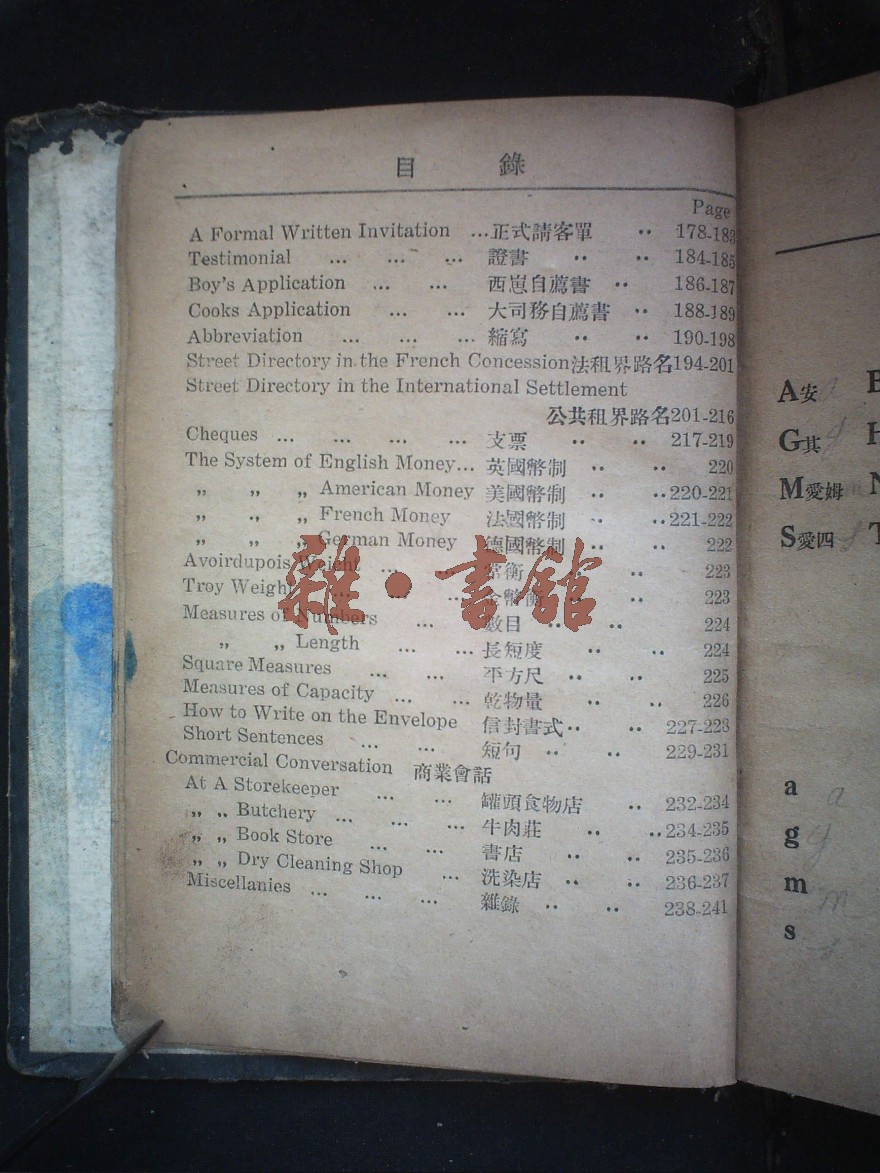 目 錄
Page
A Formal Written Invitation ...正式請客單 .. 178-183
Testimonial ... ... ... 證書 .. .. 184-185
Boy's Application ... ... 西崽自薦書 .. 186-187
Cooks Application ... ... 大司務自薦書 .. 188-189
Abbreviation ... ... ... 縮寫 .. .. 190-198
Street Directory in the French Concession法租界路名194-201
Street Directory in the International Settlement
公共租界路名201-216
Cheques ... ... ... ... 支票 .. .. 217-219
The System of English Money... 英國幣制 .. .. 220
„ „ „ American Money 美國幣制 .. ..220-221
„ „ „ French Money 法國幣制 .. ..221-222
„ „ „ German Money 德國幣制 .. 222
Avoirdupois Weight ... 常衡 .. 223
Troy Weight ... ... ... 金幣衡 .. .. 223
Measures of Numbers ... 數目 .. .. 224
„ „ Length ... ... 長短度 .. .. 224
Square Measures ... ... 平方尺 .. .. 225
Measures of Capacity ... ... 乾物量 .. .. 226
How to Write on the Envelope 信封書式.. .. 227-228
Short Sentences ... ... 短句 .. .. 229-231
Commercial Conversation 商業會話
At A Storekeeper ... ... 罐頭食物店 .. 232-234
„ „ Butchery ... ... ... 牛肉莊 .. ..234-235
„ „ Book Store ... ... 書店 .. .. 235-236
„ „ Dry Cleaning Shop ... 洗染店 .. .. 236-237
Miscellanies ... ... ... 雜錄 .. .. 238-241
雜·書館
A安 a B
G其 g H
M愛姆 m N
S愛四 s T
a a
g g
m m
s s